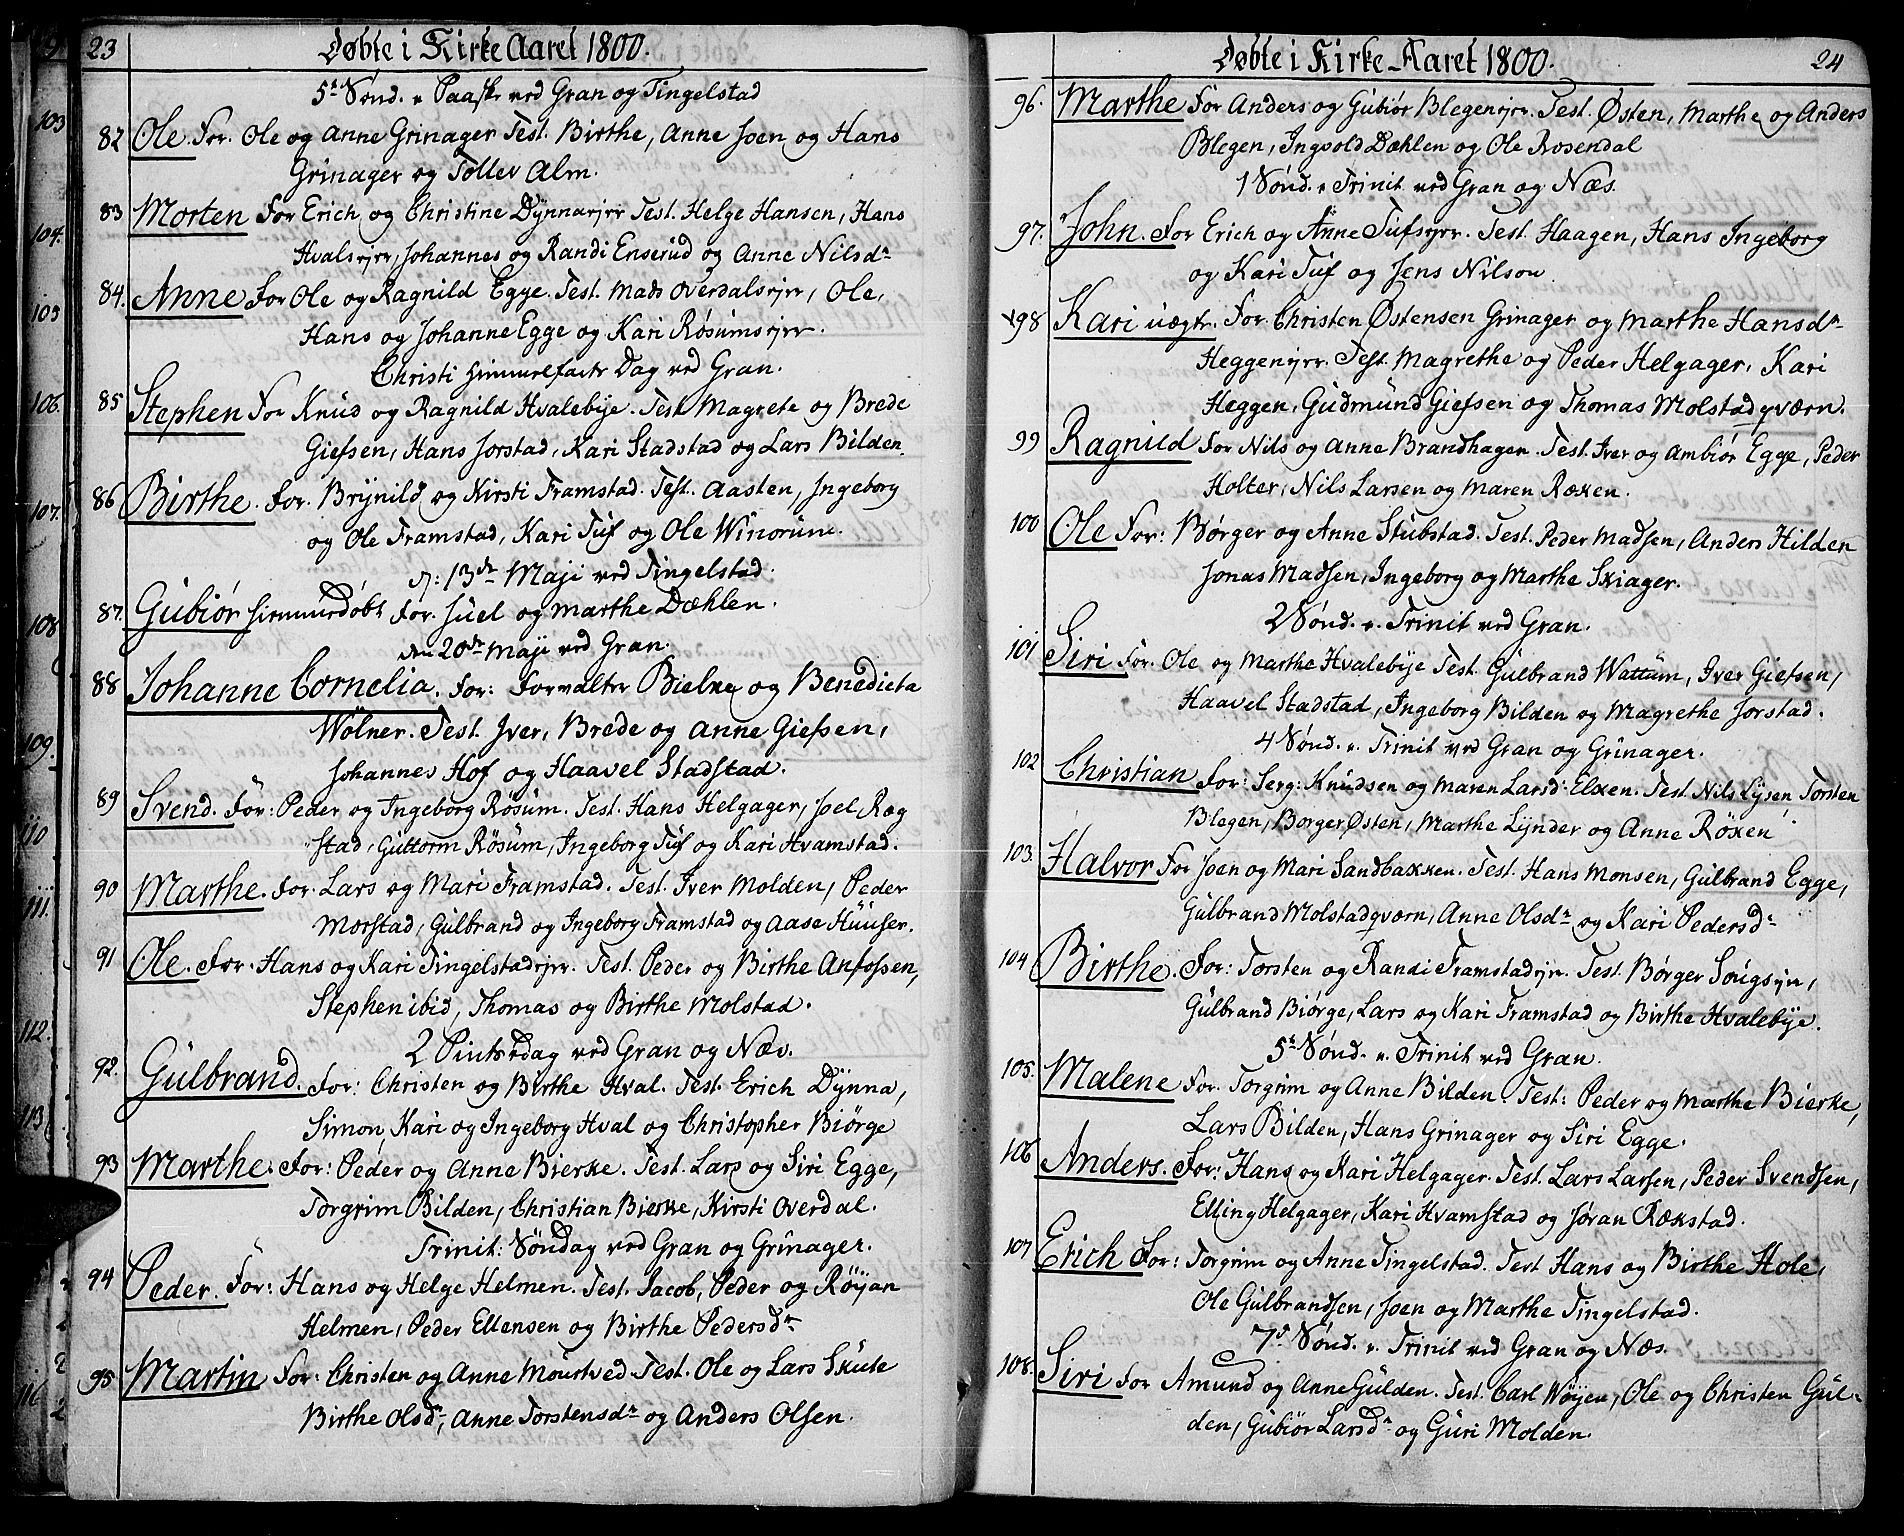 23 Døbte i Kirke Aaret 1800.
5te Sønd. e Paaske ved Gran og Tingelstad
82 Ole For. Ole og Anne Grinager Test. Birthe, Anne Joen og Hans
Grinager og Tollev Alm.
83 Morten For Erich og Christine Dynnaejer Test. Helge Hansen, Hans
Hvalsejer, Johannes og Randi Enserud og Anne Nilsdr
84. Anne For Ole og Ragnild Egge. Test. Mads Overdalsejer, Ole,
Hans og Johanne Egge og Kari Røsumsejer.
Christi Himmelfarts Dag ved Gran.
85 Stephen For Knud og Ragnild Hvalebye. Test. Magrete og Brede
Giefsen, Hans Jorstad, Kari Stadstad og Lars Bilden.
86 Birthe. For. Brynild og Kirsti Framstad. Test. Aasten, Ingeborg
og Ole Framstad, Kari Tuf og Ole Winorum.
d: 13de Maji ved Tingelstad.
87. Gubiør hiemmedøbt For. Juel og Marthe Dæhlen.
den 20de Maji ved Gran.
88 Johanne Cornelia. For: Forvalter Bielke og Benedicta
Wølner. Test. Iver, Brede og Anne Giefsen,
Johannes Hof og Haavel Stadstad.
89 Svend. For: Peder og Ingeborg Røsum. Test. Hans Helgager, Joel Ræg
stad, Guttorm Røsum, Ingeborg Tuf og Kari Hvamstad.
90 Marthe. For. Lars og Mari Framstad. Test. Iver Molden, Peder
Morstad, Gulbrand og Ingeborg Framstad og Aase Huuser.
91 Ole. For. Hans og Kari Tingelstadejer. Test. Peder og Birthe Anfossen,
Stephen ibid, Thomas og Birthe Molstad.
2 Pintsedag ved Gran og Næs.
92. Gulbrand. For: Christen og Birthe Hval. Test. Erich Dynna,
Simon, Kari og Ingeborg Hval og Christopher Biørge
93 Marthe. For: Peder og Anne Bierke. Test. Lars og Siri Egge,
Torgrim Bilden, Christian Bierke, Kirsti Overdal.
Trinit: Søndag ved Gran og Grinager.
94 Peder. For: Hans og Helge Helmen. Test. Jacob, Peder og Røijan
Helmen, Peder Ellensen og Birthe Pedersdr
95 Martin For: Christen og Anne Mourtved. Test. Ole og Lars Skute
Birthe Olsdr, Anne Torstensdr og Anders Olsen.
103
104.
105
106.
107.
108
109.
110
111.
112.
113
116
Døbte i Kirke-Aaret 1800. 24
96. Marthe For Anders og Gubiør Blegenejer. Test. Østen, Marthe og Anders
Blegen, Ingvold Dæhlen og Ole Rosendal
1 Sønd. e Trinit ved Gran og Næs.
97. John. For Erich og Anne Tufsejer. Test. Haagen, Hans Ingeborg
og Kari Tuf og Jens Nilson.
98 Kari uægte. For Christen Østensen Grinager og Marthe Hansdr
Heggenejer. Test. Magrethe og Peder Helgager, Kari
Heggen, Gudmund Giefsen og Thomas Molstadqværn.
99 Ragnild For Nils og Anne Brandhagen. Test. Iver og Ambiør Egge, Peder
Holter, Nils Larsen og Maren Ræken.
100 Ole For: Børger og Anne Stubstad. Test. Peder Madsen, Anders Hilden
Jonas Madsen, Ingeborg og Marthe Skiager.
2 Sønd. e. Trinit ved Gran.
101 Siri For. Ole og Marthe Hvalebye Test. Gulbrand Wattum, Iver Giefsen,
Haavel Stadstad, Ingeborg Bilden og Magrethe Jorstad.
4 Sønd. e. Trinit ved Gran og Grinager.
102 Christian For: Serg: Knudsen og Maren Larsd: Elken. Test. Nils Lysen Torsten
Blegen, Borger Østen, Marthe Lynder og Anne Røken.
103. Halvor For Joen og Mari Sandbakken. Test. Hans Monsen, Gulbrand Egge,
Gulbrand Molstadqværn, Anne Olsdr og Kari Pedersdr
104 Birthe. For: Torsten og Randi Framstadejer. Test. Børger Sougsejer,
Gulbrand Biørge, Lars og Kari Framstad og Birthe Hvalebye.
5te Sønd. e. Trinit ved Gran.
105. Malene For. Torgrim og Anne Bilden. Test: Peder og Marthe Bierke,
Lars Bilden, Hans Grinager og Siri Egge.
106 Anders. For: Hans og Kari Helgager. Test. Lars Larsen, Peder Svendsen,
Elling Helgager, Kari Hvamstad og Jøran Rækstad.
107 Erich For: Torgrim og Anne Tingelstad. Test Hans og Birthe Hole,
Ole Gulbrandsen, Joen og Marthe Tingelstad.
7de Sønd. e. Trinit ved Gran og Næs.
108. Siri For Amund og Anne Gulden. Test. Carl Wøyen, Ole og Christen Gul-
den, Gubiør Larsdr og Guri Molden.